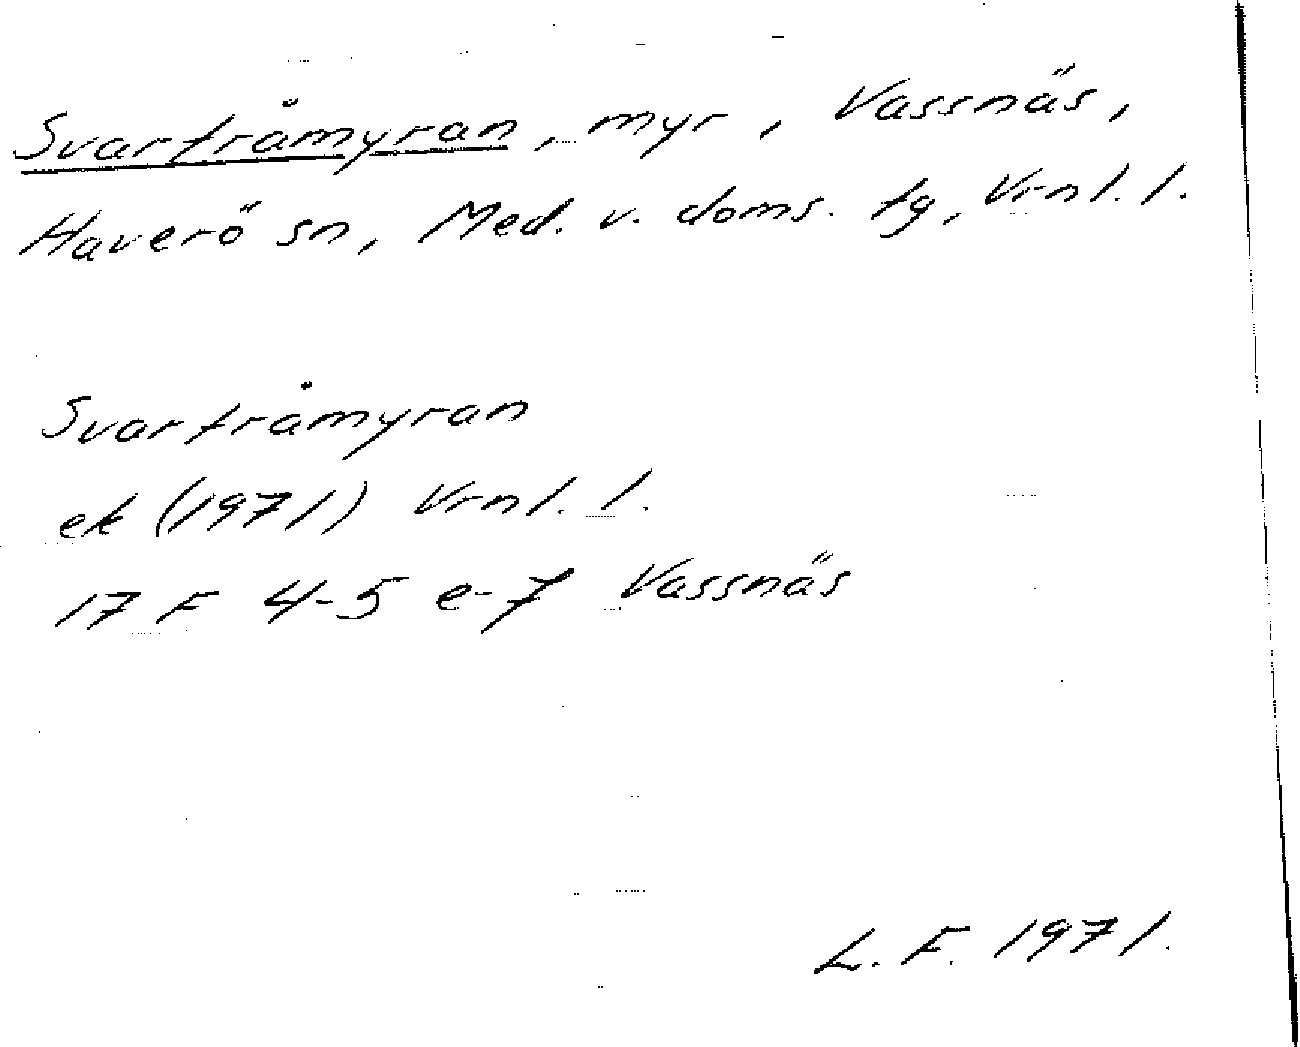 Svartråmyran, myr, Vassnäs,
Haverö sn, Med. v. doms. tg, Vrnl. l.
Svartråmyran
ek (1971) Vrnl. l.
17 F 4-5 e-7 Vassnäs
L. F. 1971.